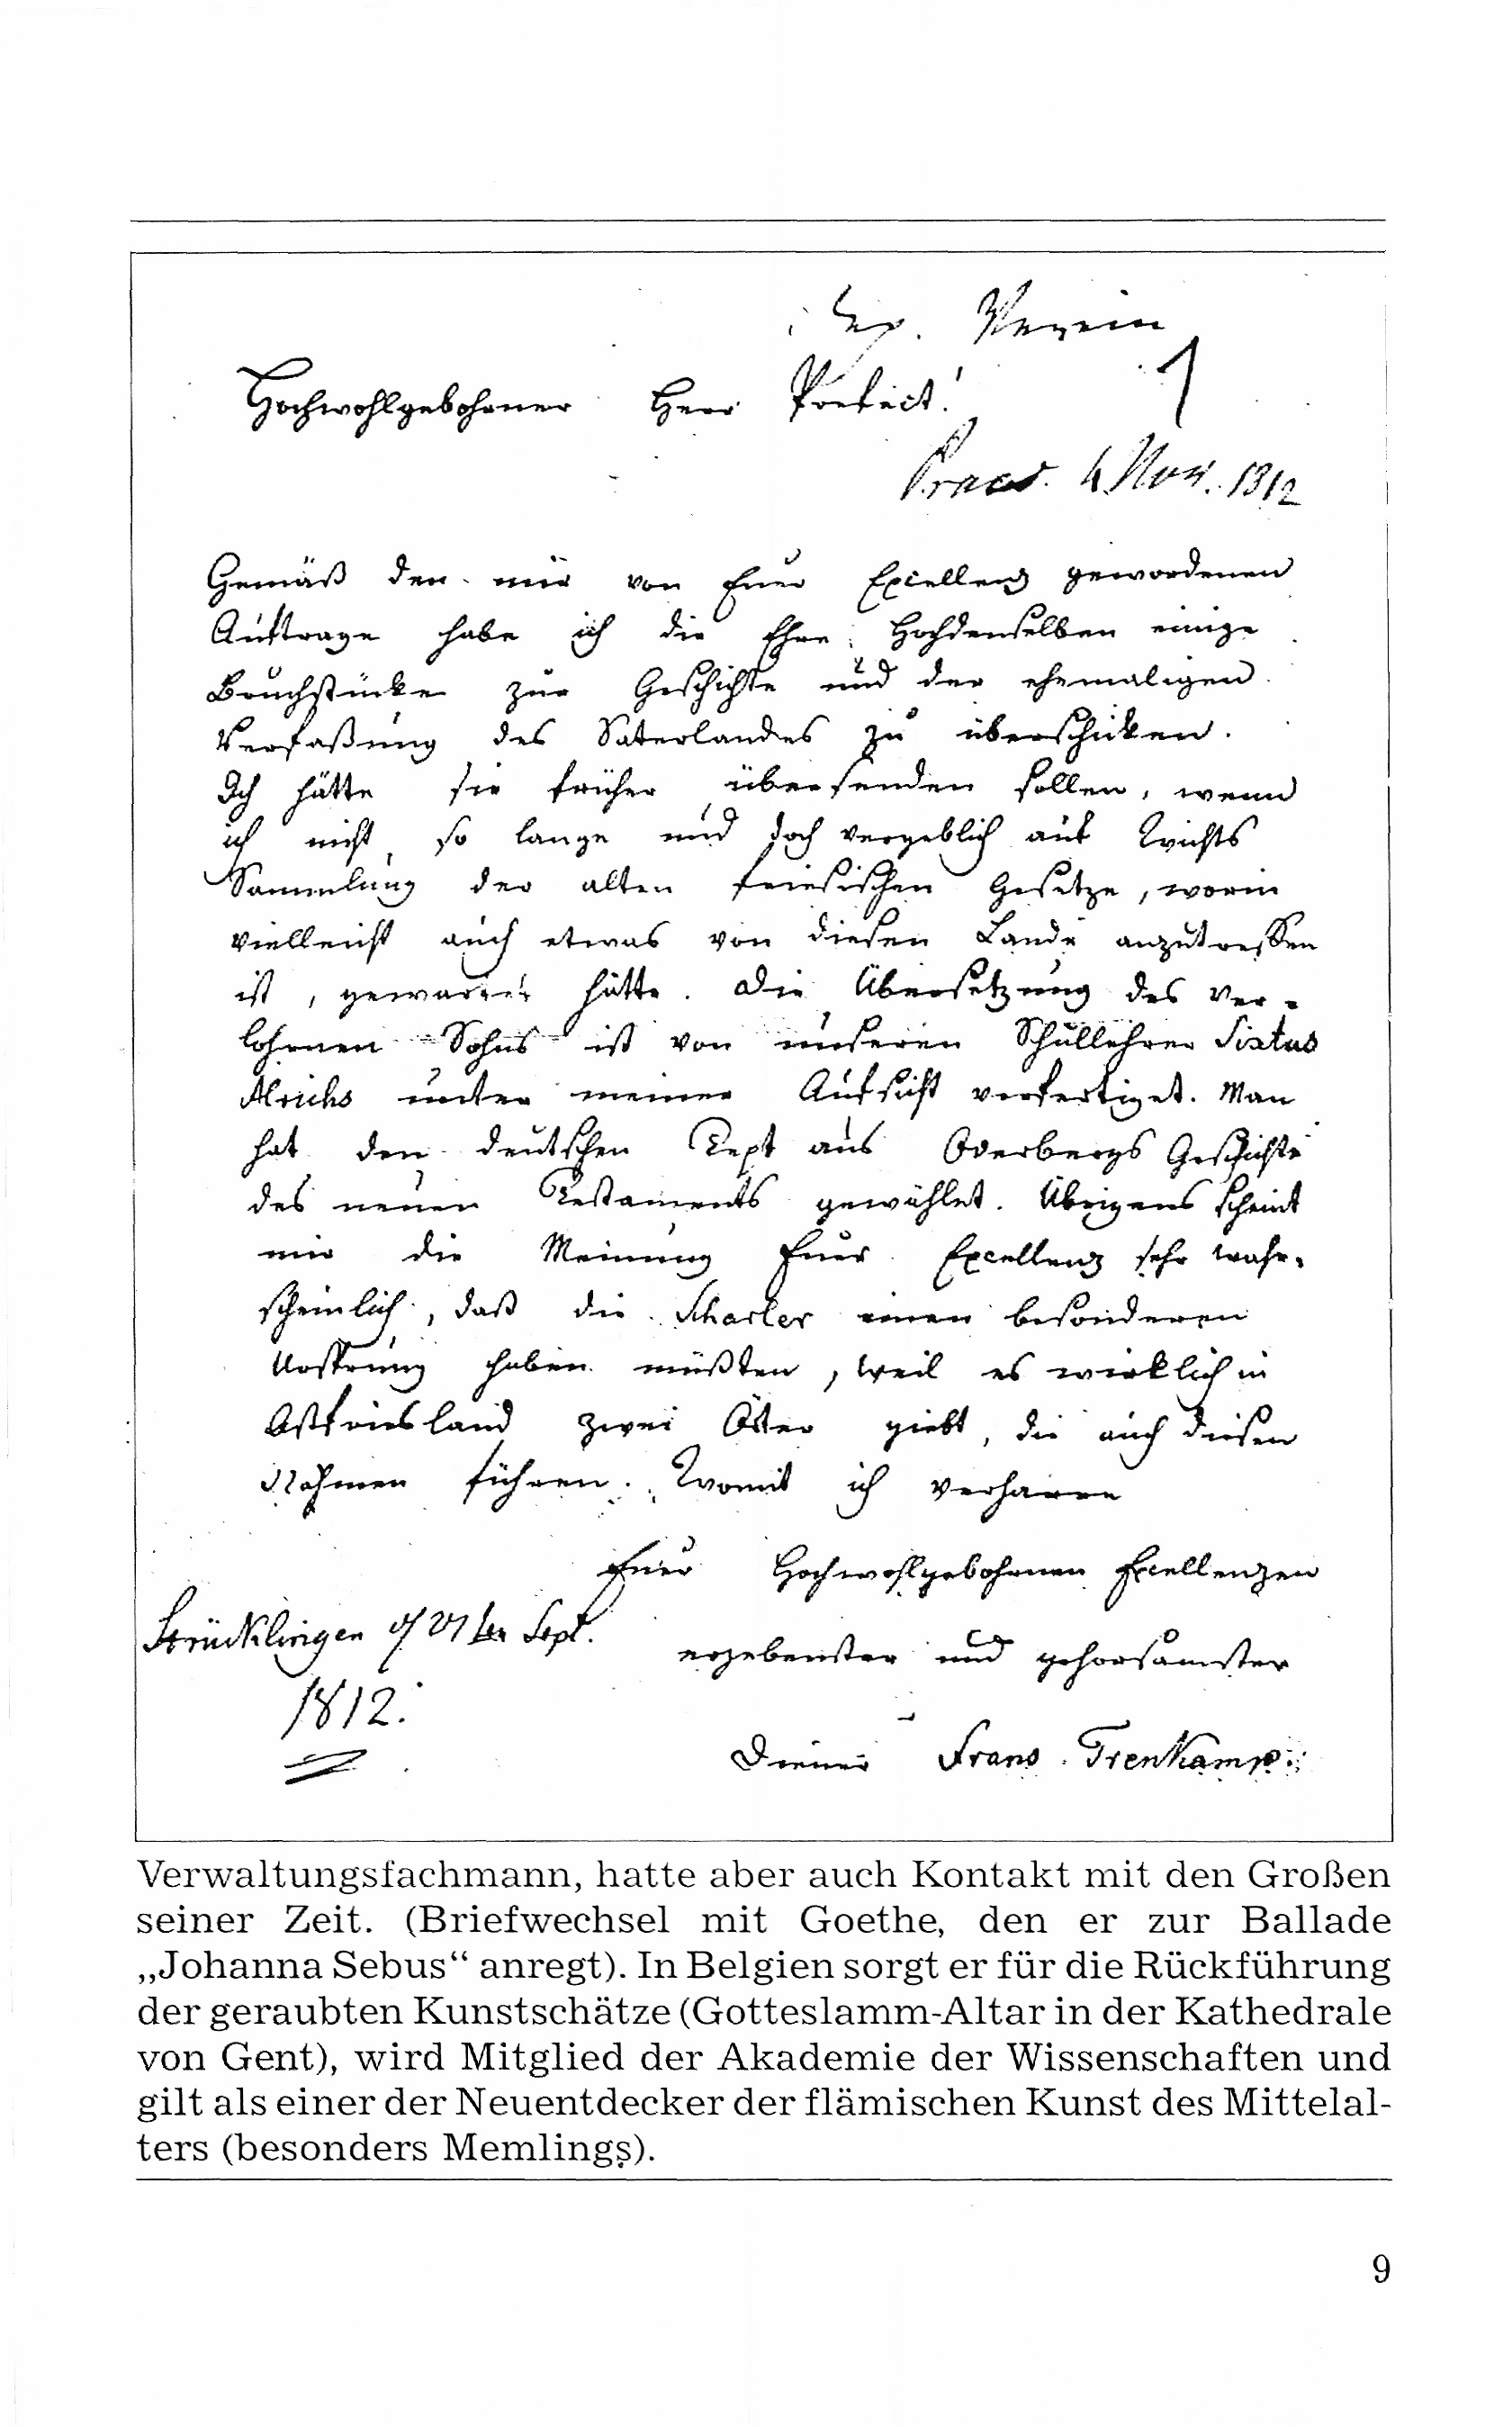 Hochwohlgebohrner Herr Prefect!
Praes. 4 Nov. 1812
Gemäß den mir von Euer Excellenz gewordenen
Auftrage habe ich die Ehre Hochdenselben einige
Bruchstücke zur Geschichte und der ehemaligen
Verfaßung des Saterlandes zu überschicken.
Ich hätte sie früher übersenden sollen, wenn
ich nicht so lange und doch vergeblich auf Wichts
Sammlung der alten friesischen Gesetze, worin
vielleicht auch etwas von diesen Lande anzutreffen
ist, gewartet hätte. Die Übersetzung des Ver-
lohrnen Sohns ist von unseren Schullehrer Sixtus
Alrichs unter meiner Aufsicht verfertiget. Man
hat den deutschen Text aus Overbergs Geschichte
des neuen Testaments gewählet. Übrigens scheint
mir die Meinung Euer Excellenz sehr wahr-
scheinlich, daß die Scharler einen besonderen
Ursprung haben müßten, weil es wirklich in
Ostfriesland zwei Örter giebt, die auch diesen
Nahmen führen. Womit ich verharre
Euer Hochwohlgebohrnen Excellenzen
Strücklingen Sept.
1812.
ergebenster und gehorsamster
Diener Frans Trenkamp
Verwaltungsfachmann, hatte aber auch Kontakt mit den Großen
seiner Zeit. (Briefwechsel mit Goethe, den er zur Ballade
„Johanna Sebus“ anregt). In Belgien sorgt er für die Rückführung
der geraubten Kunstschätze (Gotteslamm-Altar in der Kathedrale
von Gent), wird Mitglied der Akademie der Wissenschaften und
gilt als einer der Neuentdecker der flämischen Kunst des Mittelal-
ters (besonders Memlings).
9